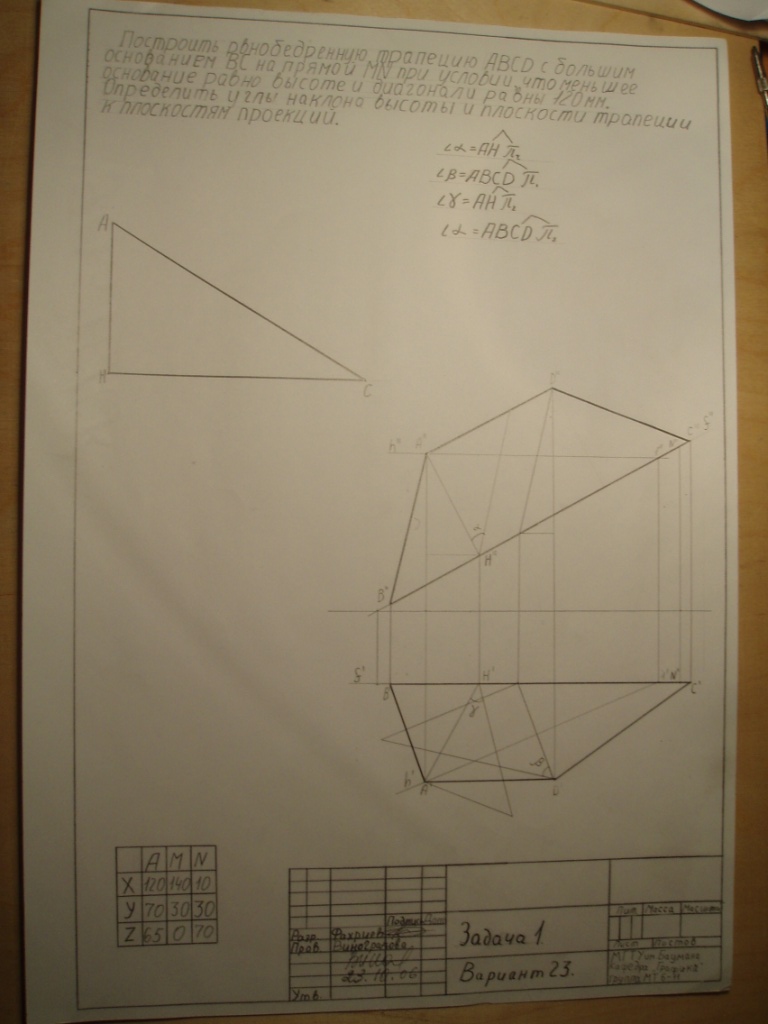 Построить равнобедренную трапецию ABCD с большим
основанием BC на прямой MN при условии, что меньшее
основание равно высоте и диагонали равны 120 мм.
Определить углы наклона высоты и плоскости трапеции
к плоскостям проекций.
∠α = AH π₂
∠β = ABCD π₁
∠γ = AH π₂
∠α = ABCD π₂
A
H
C
D"
h" A" 1" N" C"
H"
B"
B' H' 1' N' C'
α'
β
h' A' D
A M N
X 120 140 10
У 70 30 30
Z 65 0 70
Подпись Дата
Разр.
Пров. Виноградова
23.10.06
Утв.
Задача 1.
Вариант 23.
Лит. Масса Масштаб
Лист Листов
МГТУ им. Баумана
Кафедра "Графика"
Группа МТ